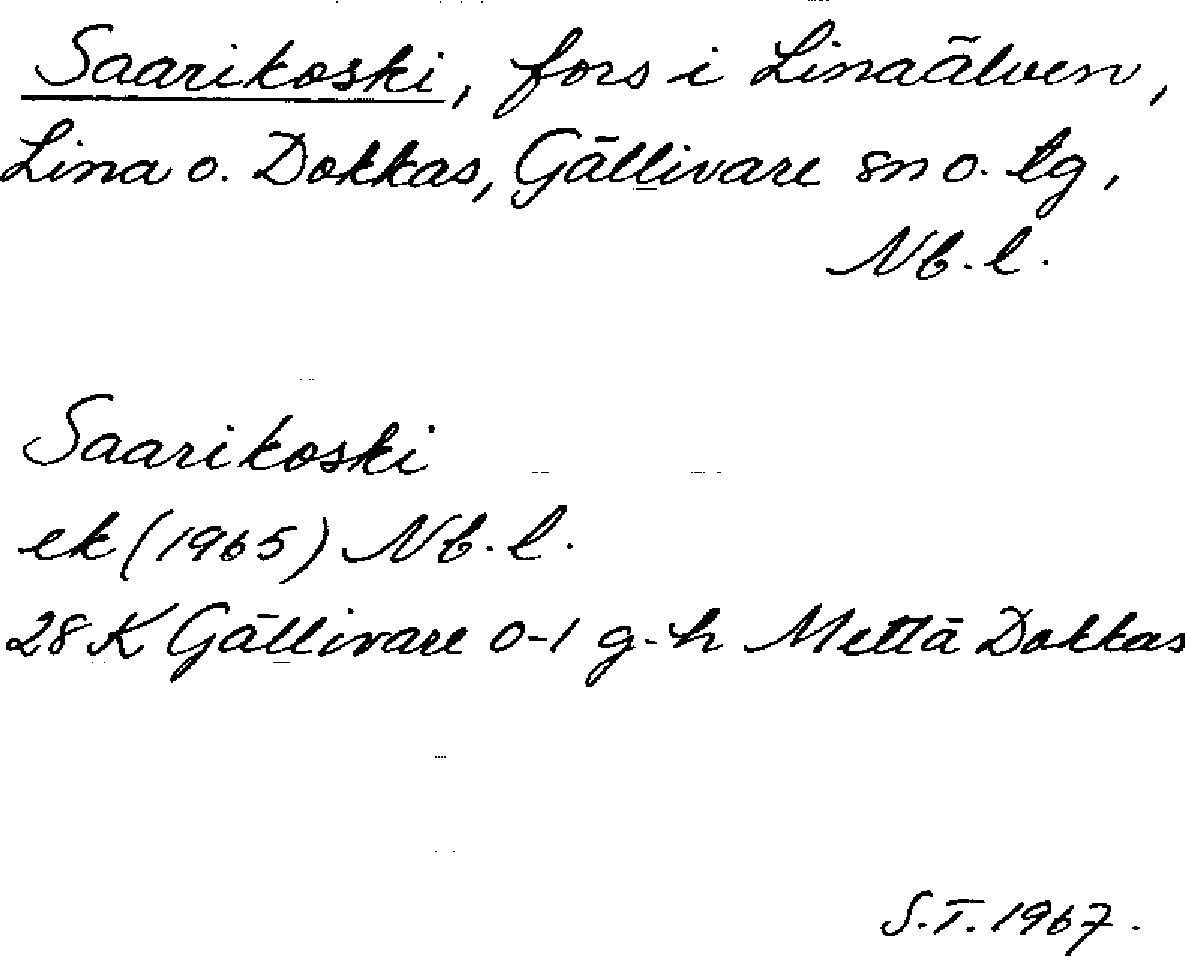 Saarikoski, fors i Linaälven,
Lina o. Dokkas, Gällivare sn o. tg,
Nb. l.
Saarikoski
ek (1965) Nb. l.
28 K Gällivare 0-1 g-h Mettä Dokkas
S.T. 1967.